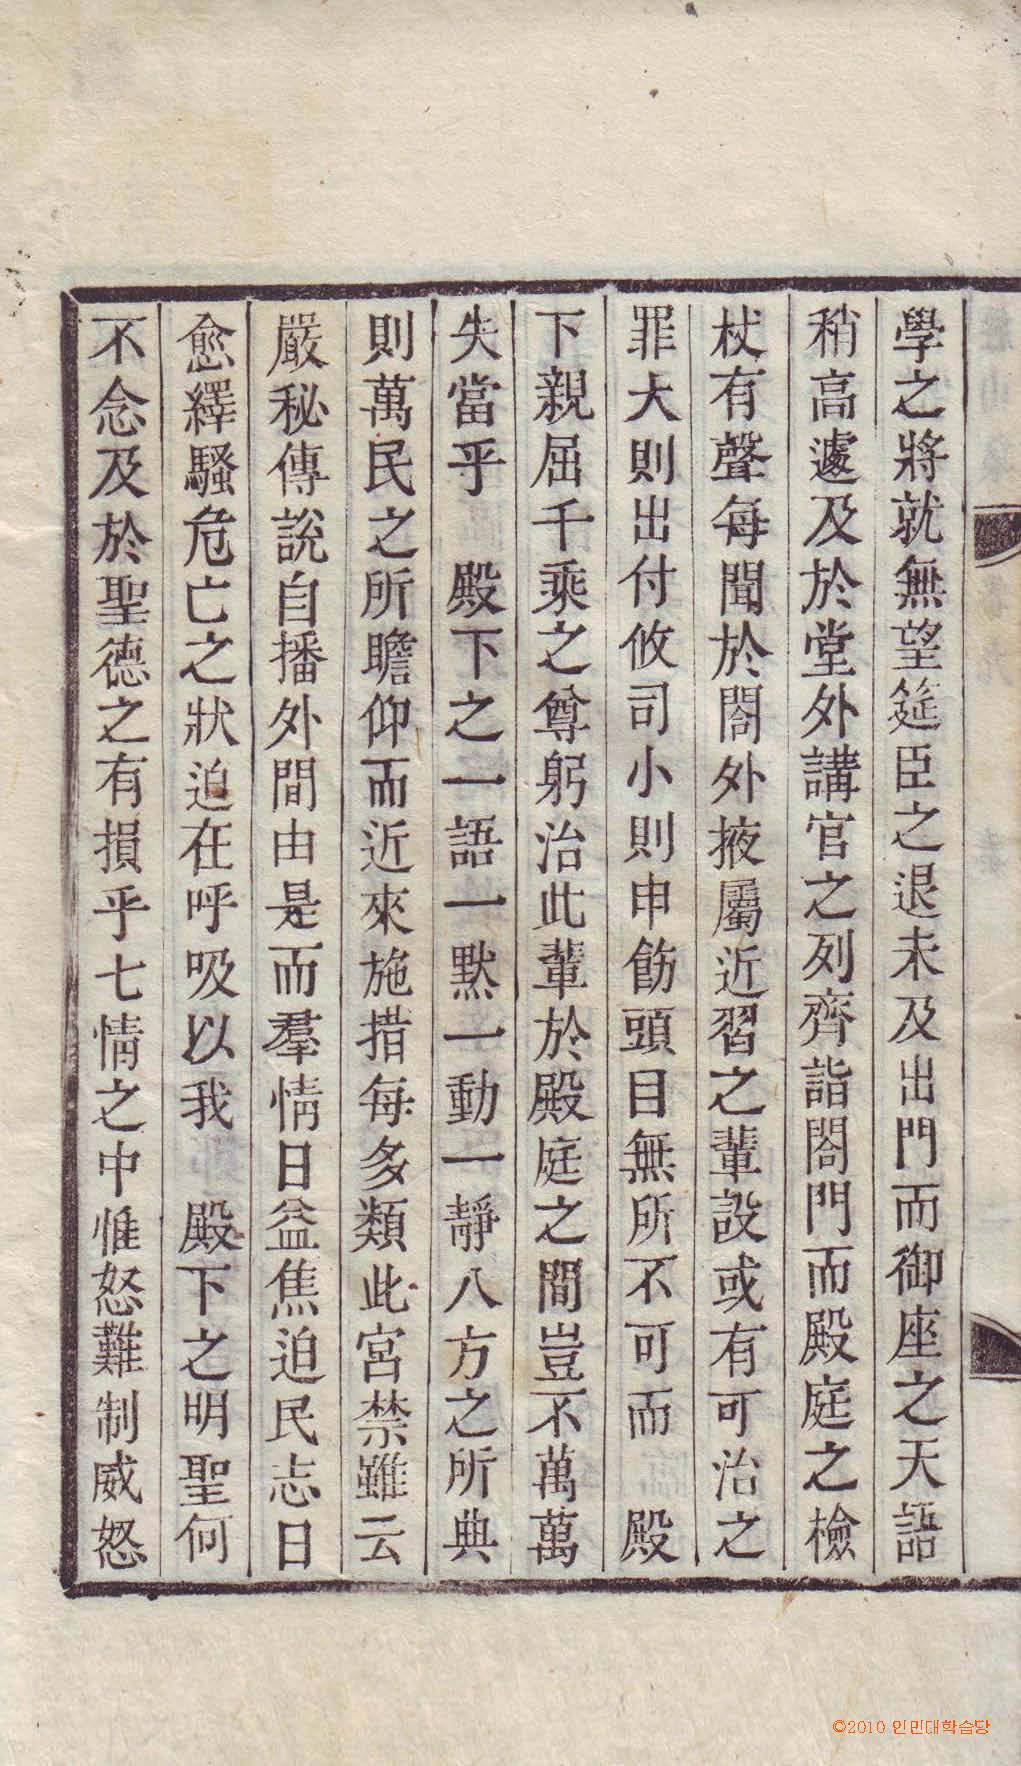 學之將就無望筵臣之退未及出門而御座之天語
稍高遽及於堂外講官之列齊詣閤門而殿庭之檢
杖有聲每聞於閤外掖屬近習之輩設或有可治之
罪大則出付攸司小則申飭頭目無所不可而　殿
下親屈千乘之尊躬治此輩於殿庭之間豈不萬萬
失當乎　殿下之一語一默一動一靜八方之所典
則萬民之所瞻仰而近來施措每多類此宮禁雖云
嚴秘傳說自播外間由是而羣情日益焦迫民志日
愈繹騷危亡之狀迫在呼吸以我　殿下之明聖何
不念及於聖德之有損乎七情之中惟怒難制威怒
©2010 인민대학습당